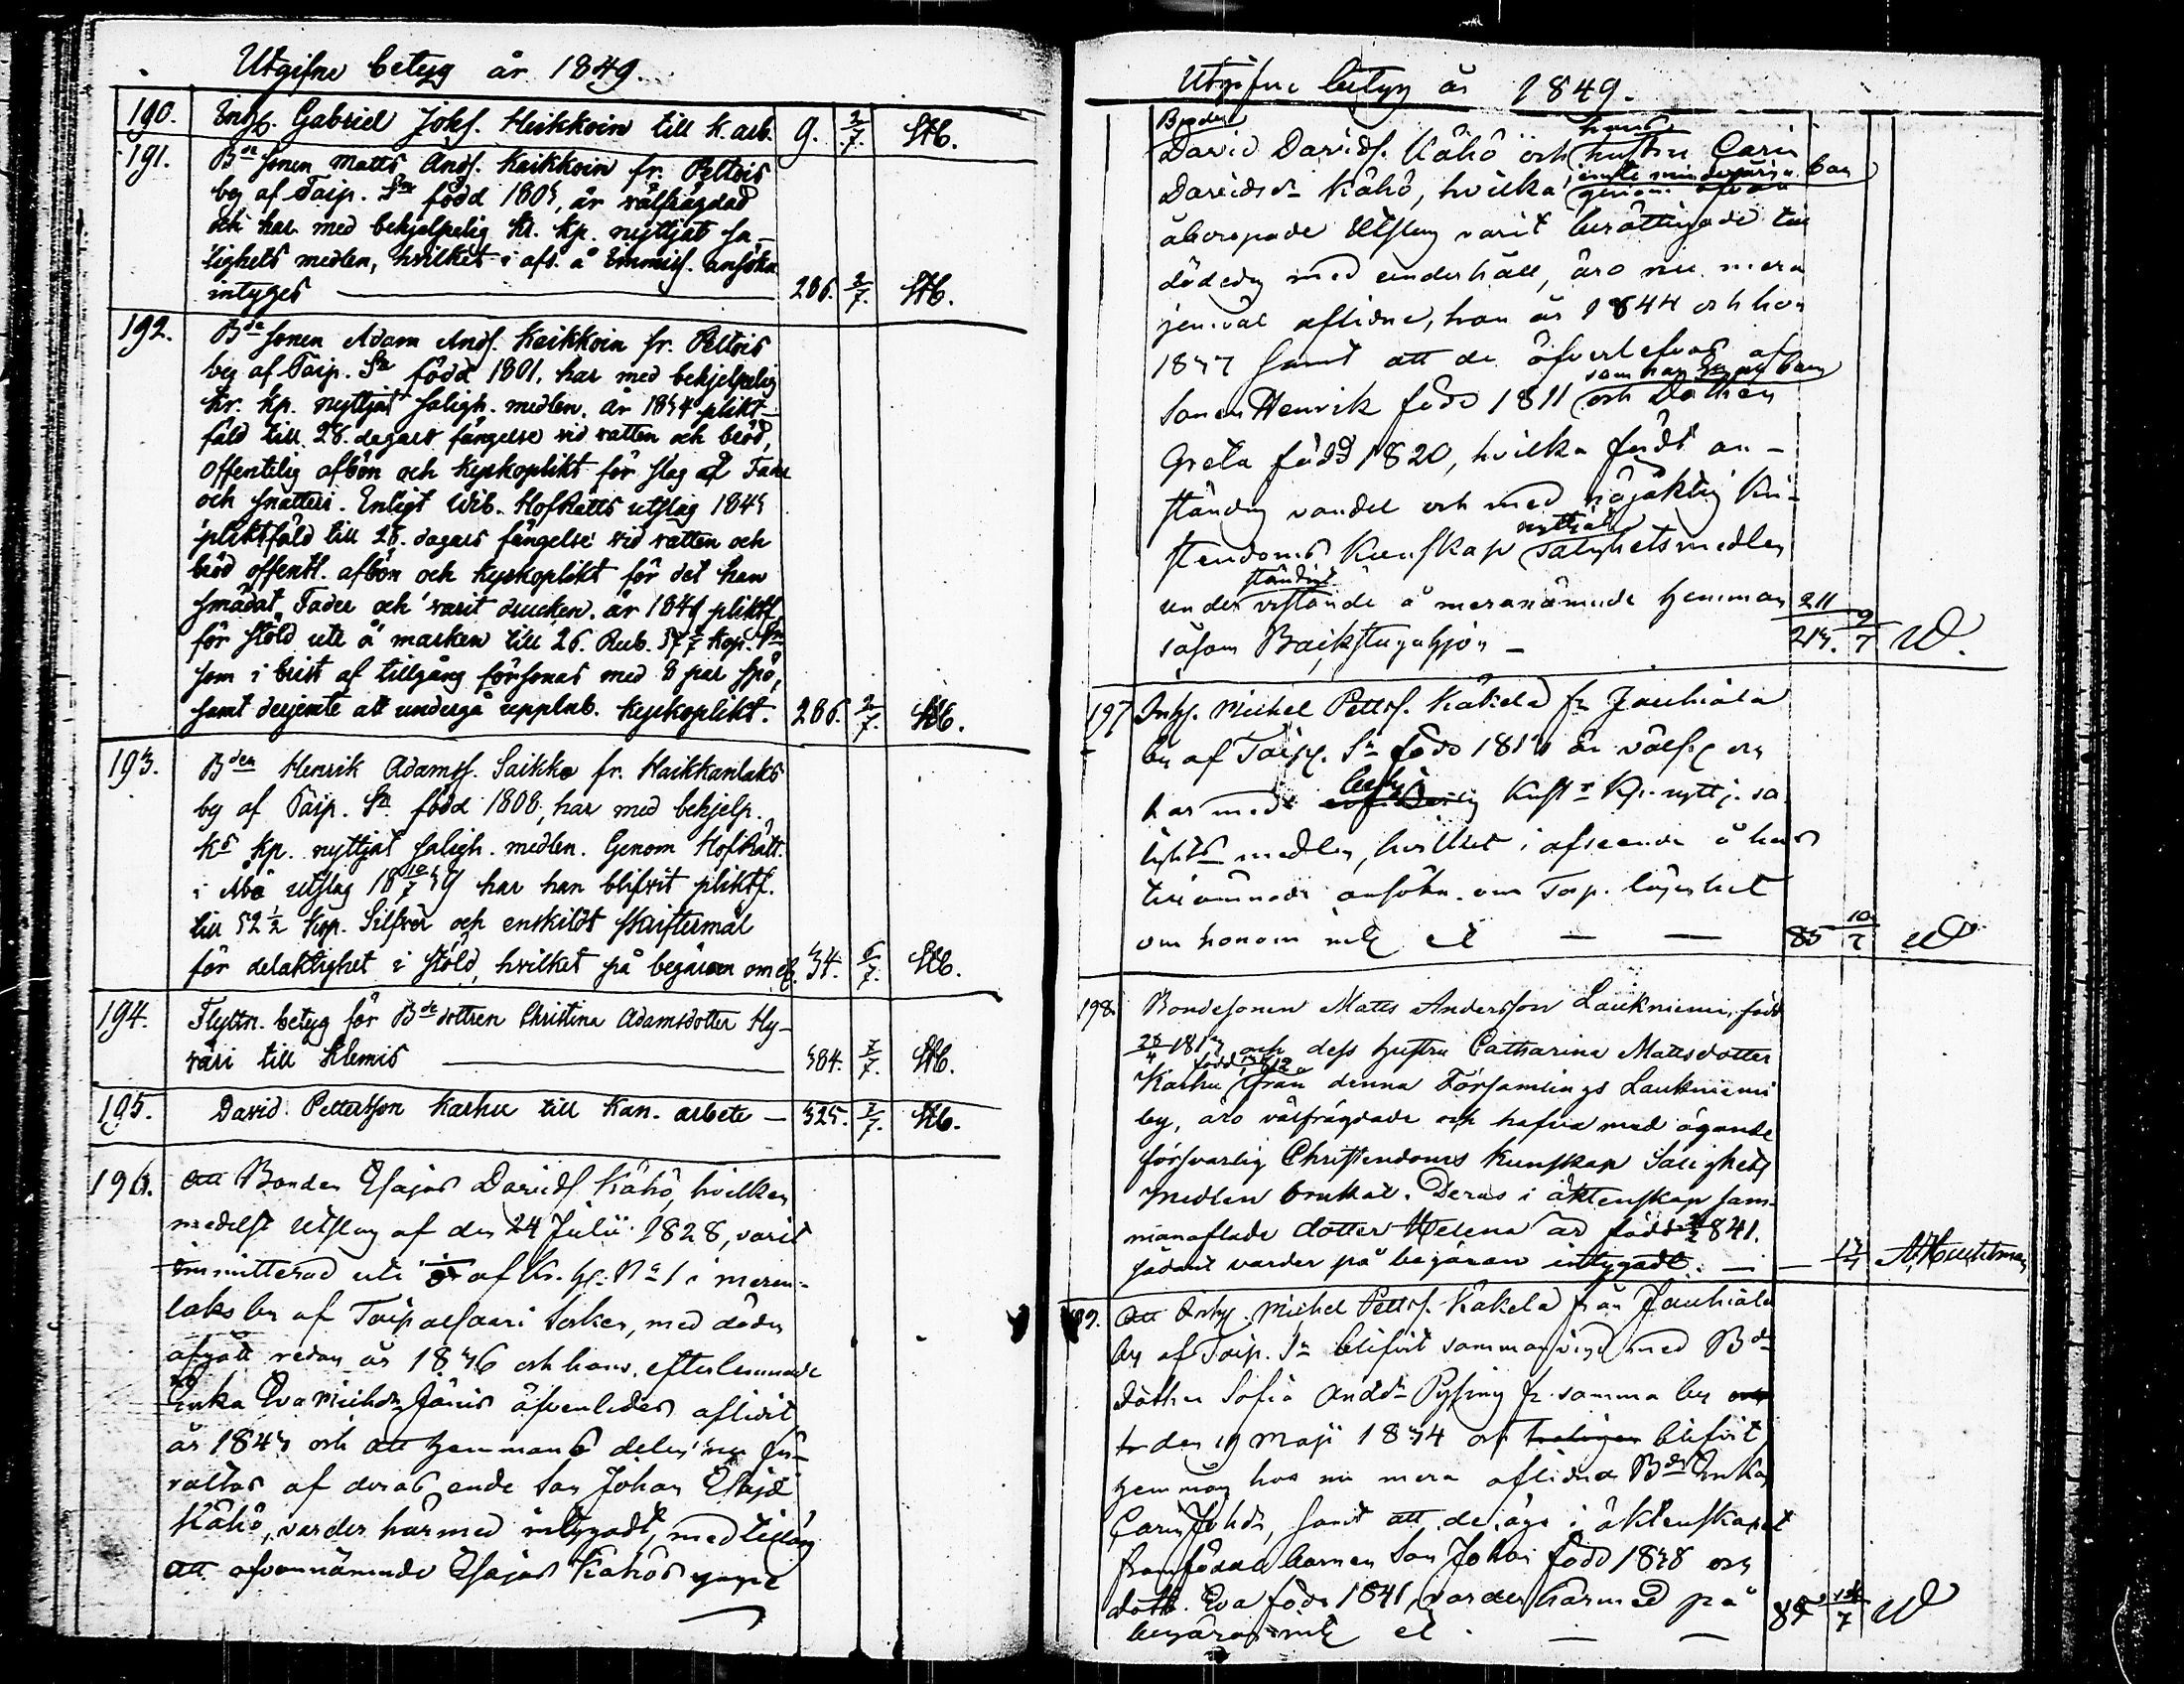 Utgifne betyg år 1849.
190. Inhs. Gabriel Johs. Heikkoin till K. arb. 9. 2/7. HB.
191. Bde sonen Matts Ands. Kaikkoin fr. Peltois
by af Taip. Sn född 1805, är välfrägdad
och har med behjelpelig Kr. Kp. nyttjat sa-
lighets medlen, hvilket i afs. å Emmiss. ansökn.
intyges — 286. 2/7. HB.
192. Bde sonen Adam Ands. Kaikkoin fr. Peltois
by af Taip. Sn född 1801. har med behjelpelig
Kr. Kp. nyttjat saligh. medlen. år 1834 plikt-
fäld till 28. dagars fängelse vid vatten och bröd,
offentelig afbön och Kyrkoplikt för slag å Fader
och snatteri. Enligt Wib. HofRätts utslag 1845
pliktfäld till 28. dagars fängelse vid vatten och
bröd offentl. afbön och Kyrkoplikt för det han
smädat Fader och varit drucken. år 1849 pliktf.
för stöld ute å marken till 26. Rub. 57 1/7 Kop.
som i brist af tillgång försonas med 8 par spö,
samt derjemte att undergå upplnb. Kyrkoplikt. 286. 2/7. HB.
193. Bden Henrik Adamss. Saikko fr. Haikkanlaks
by af Taip. Sn född 1808, har med behjelp.
Ks Kp. nyttjat saligh. medlen. Genom HofRätt.
i Åbo utslag 18 10/7 39 har han blifvit pliktf.
till 52 1/2 Kop. Silfver och enskildt skriftermål
för delaktighet i stöld, hvilket på begäran 34. 6/7. HB.
194. Flyttn. betyg för Bde dottren Christina Adamsdotter Hy-
väri till Klemis — 384. 7/7. HB.
195. David Pettersson Karhu till Kan. arbete — 325. 7/7. HB.
196. Att Bonden Esajas Davids. Kähö, hvilken
medelst Utslag af den 24 Julii 1828, varit
immitterad uti af Kr. hn. No 1 i
laks by af Taipalsaari Socken, med döden
afgått redan år 1836 och hans efterlemnade
Enka Eva Michdr Jänis äfvenledes aflidit
år 1843 och att hemmans delen nu för-
valtas af deras ende Son Johan Esajs.
Kähö, varder härmed intygadt, med tillägg
att ofvannämnde Esajas Kähös
Utgifne betyg år 1849.
Broder
David Davids. Kähö och hans hustru Carin
Davidsdr Kähö, hvilka jemte minderåriga barn genom ofvan
åberopade Utslag varit berättigade till
dödedag med underhåll, äro nu mera
jemväl aflidne, han år 1844 och hon
1837 samt att de öfverlefvas af
Sonen Henrik född 1811 som har hu och barn och Dottren
Greta född 1820, hvilka fört an-
ständig vandel och med nöjaktig Kri-
stendoms Kunskap nyttjat Salighetsmedlen
under ständigt vistande å meranämnde hemman 211
såsom Backstuguhjon — 213. 9/7 W.
197 Inhs. Michel Petters. Käkelä fr. Jauhiala
by af Taip. Sn född 1810 är välfr. och
har med behj. Kr. Kp. nyttj. sa-
lighets medlen, hvilket i afseende å hans
tillämnade ansökn. om Torp. lägenhet
om honom — — 85 10/7 W
198. Bondesonen Matts Andersson Laukniemi, född
28/4 1813 och dess hustru Catharina Mattsdotter
Karhu född 1812 från denna Församlings Laukniemi
by, äro välfrägdade och hafva med ägande
försvarlig Christendoms Kunskap Salighets
medlen brukat. Deras i äktenskap sam-
manaflade dotter Helena är född 1841.
sådant varder på begäran intygadt. — —
199. Att Inhs. Michel Petters. Käkelä från Jauhiala
by af Taip. Sn blifvit sammanvigd med Bde
dottren Sofia Andsdr Pysing fr. samma by
den 19 Maji 1834 och blifvit
hos nu mera aflidna Bde Enkan
Carin Johdr, samt att de äga i äktenskapet
framfödde barnen Son Johan född 1838 och
dottr. Eva född 1841, varder härmed på
begäran — — 7 W